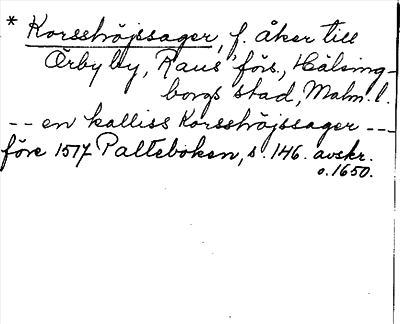 * Korsshöjssager, f. åker till
Örby by, Raus förs., Hälsing-
borgs stad, Malm. l.
-- en kalliss Korsshöjssager ---
före 1517 Palteboken, s. 146. avskr.
o. 1650.